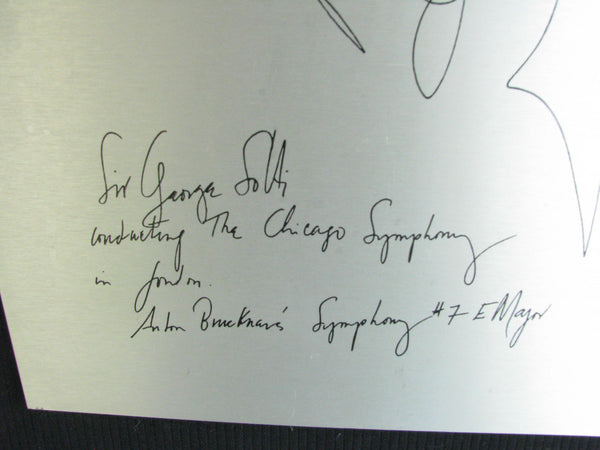 Sir George Solti
conducting The Chicago Symphony
in London.
Anton Bruckner's Symphony #7 E Major